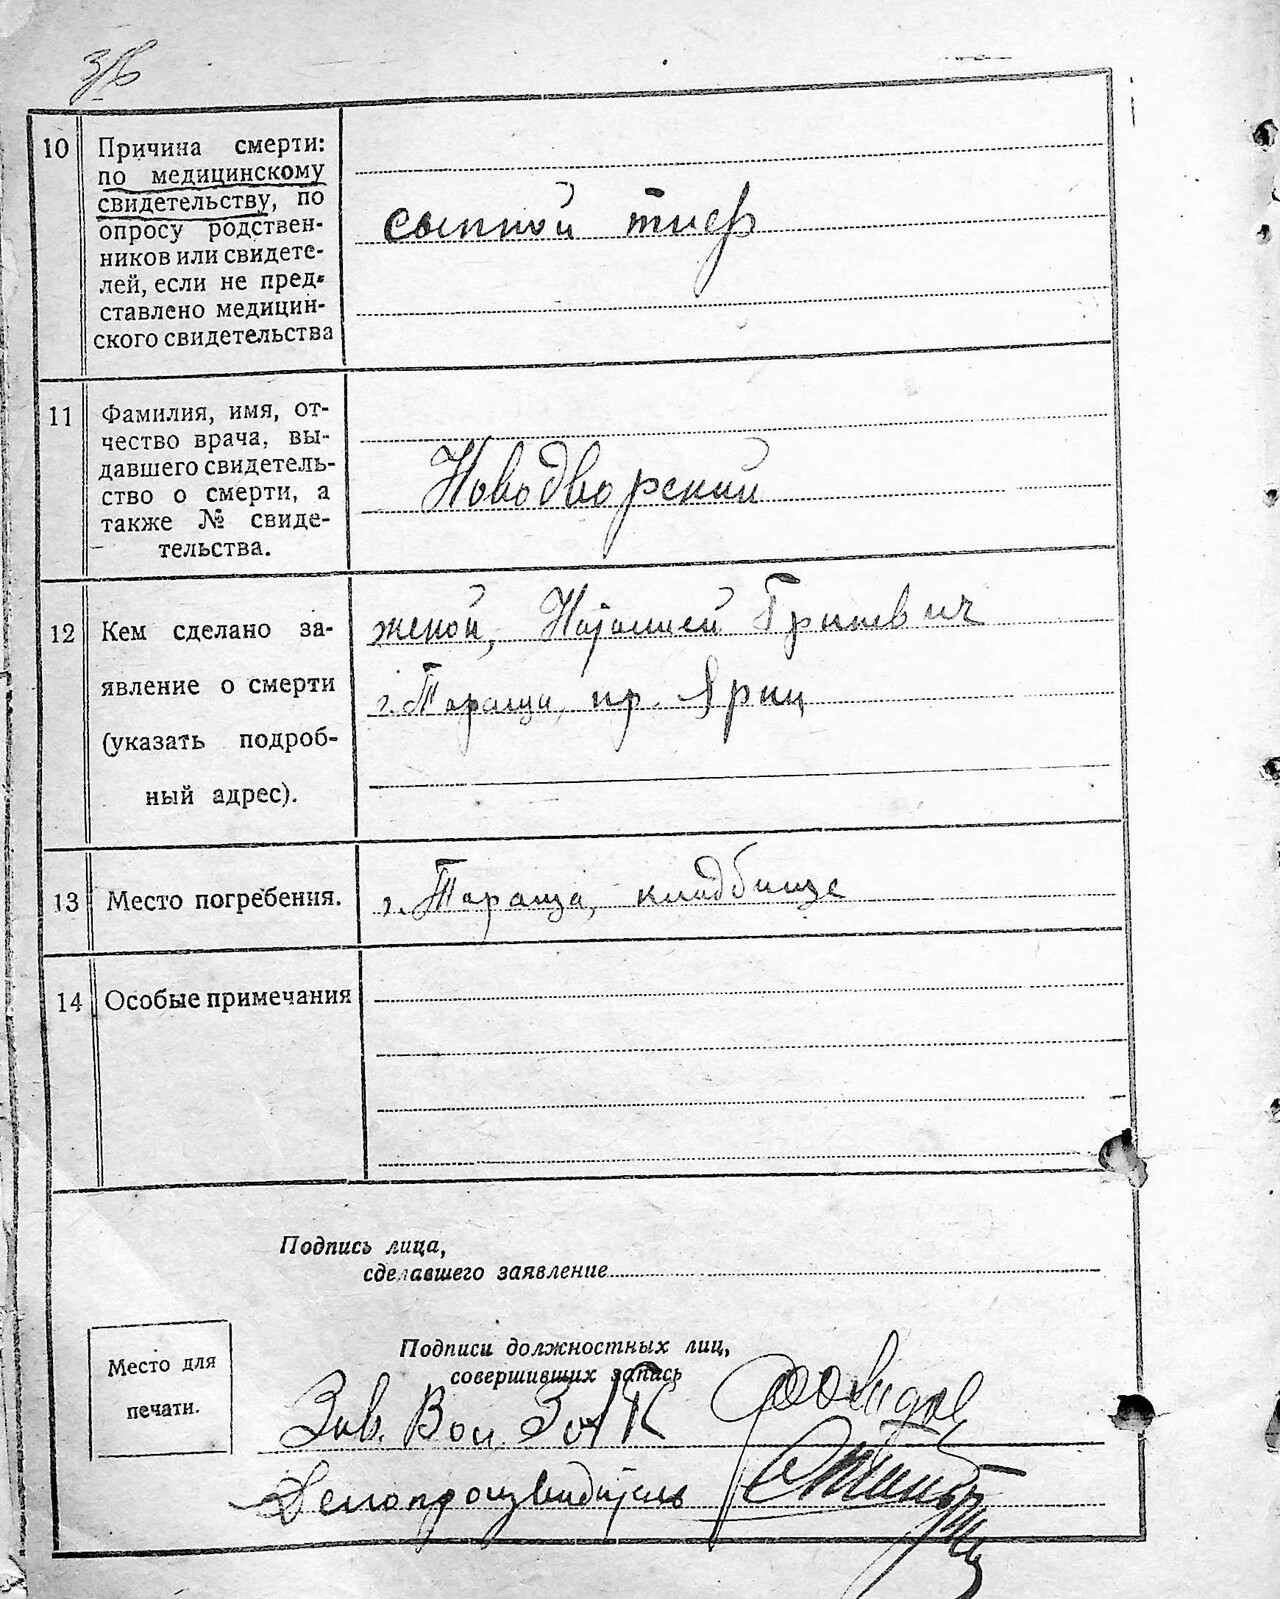 10 Причина смерти:
по медицинскому
свидетельству, по
опросу родствен-
ников или свидете-
лей, если не пред-
ставлено медицин-
ского свидетельства
сыпной тиф
11 Фамилия, имя, от-
чество врача, вы-
давшего свидетель-
ство о смерти, а
также № свиде-
тельства.
Новодворский
12 Кем сделано за-
явление о смерти
(указать подроб-
ный адрес).
женой, Наталией Гриневич
г. Тараща, пр.
13 Место погребения.
г. Тараща, кладбище
14 Особые примечания
Подпись лица,
сделавшего заявление
Место для
печати.
Подписи должностных лиц,
совершивших запись
Зав.
Делопроизводитель